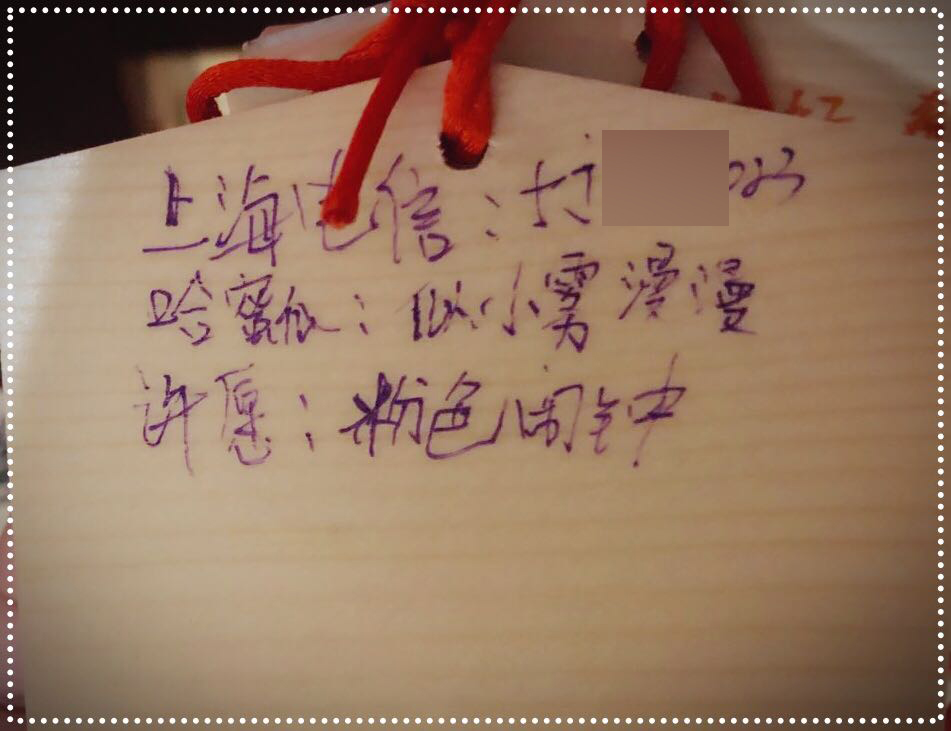 红
上海电信：打
哈密瓜：似小雾漫漫
许愿：粉色闹钟